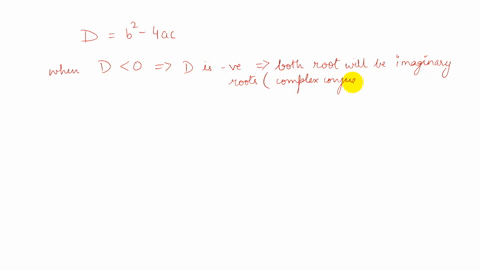 D = b² - 4ac
when D < 0 => D is -ve => both root will be imaginary
roots ( complex conju